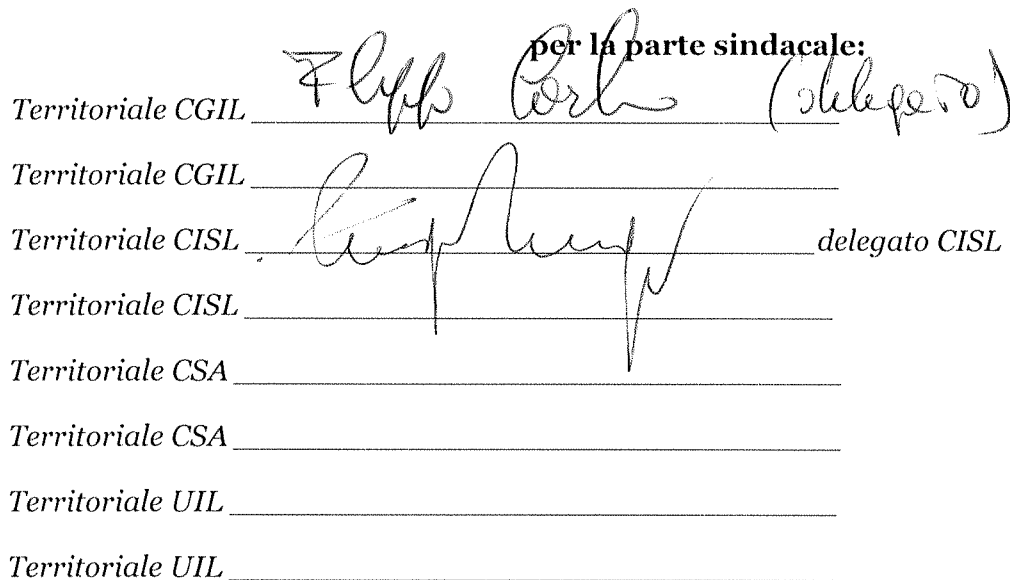 per la parte sindacale:
Territoriale CGIL Filippo (delegato)
Territoriale CGIL
Territoriale CISL delegato CISL
Territoriale CISL
Territoriale CSA
Territoriale CSA
Territoriale UIL
Territoriale UIL